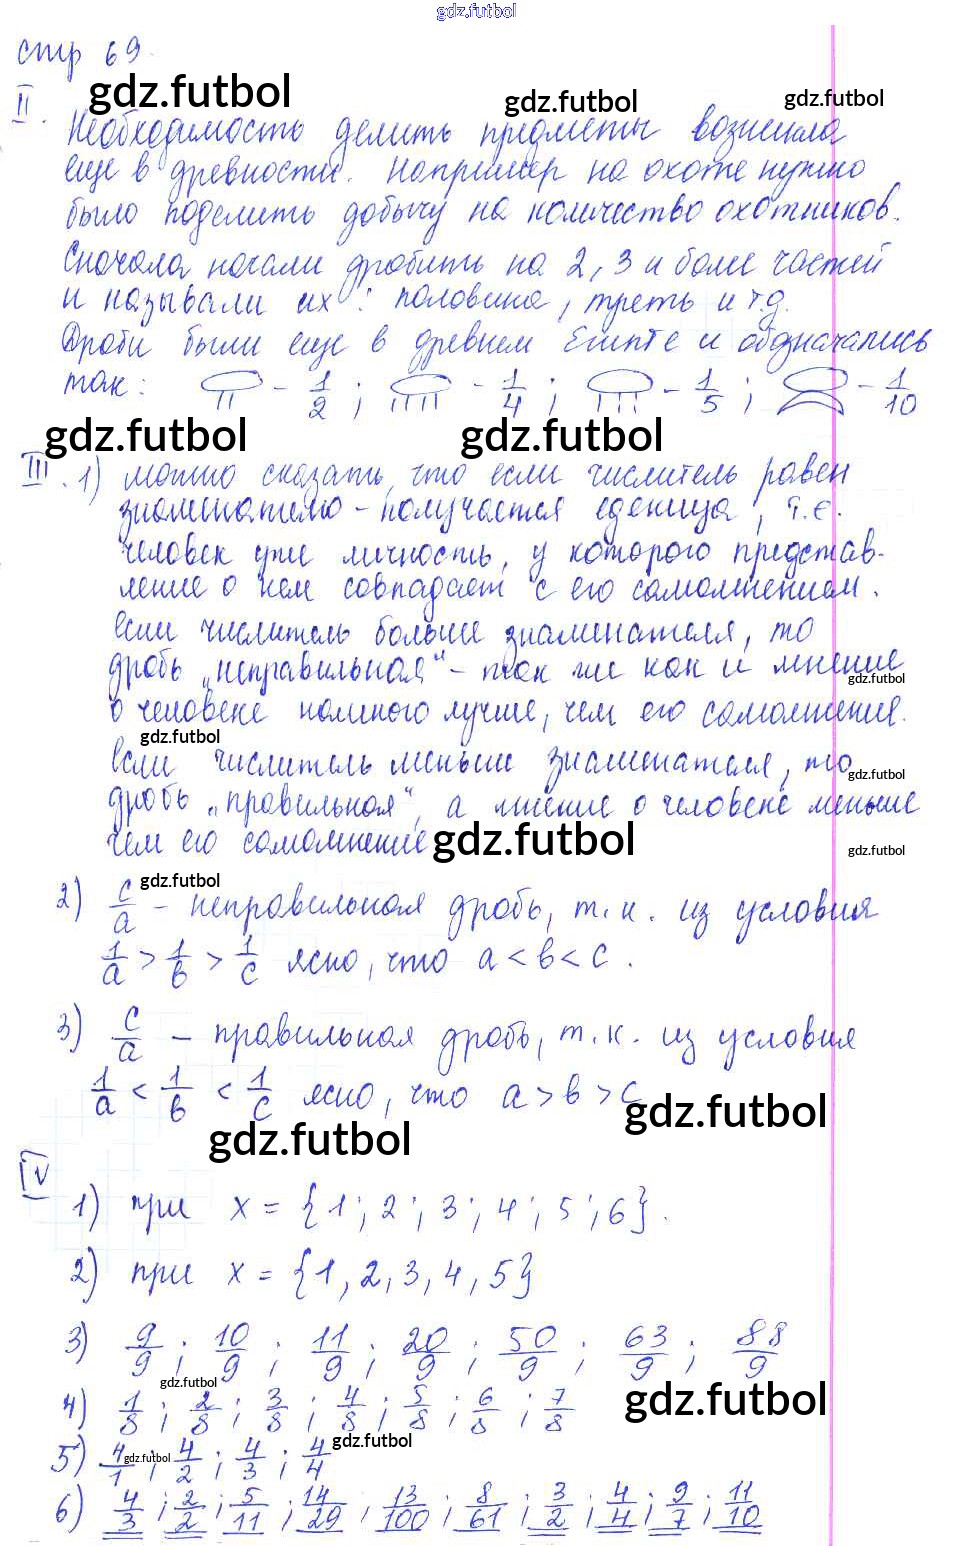 gdz.futbol
стр 69.
gdz.futbol
II.
gdz.futbol
gdz.futbol
Необходимость делить предметы возникла
еще в древности. Например на охоте нужно
было поделить добычу на количество охотников.
Сначала начали дробить на 2, 3 и более частей
и называли их: половина, треть и т.д.
Дроби были еще в древнем Египте и обозначались
так: - 1/2 ; - 1/4 ; - 1/5 ; - 1/10
gdz.futbol
gdz.futbol
III. 1) можно сказать, что если числитель равен
знаменателю - получается единица, т.е.
человек уже личность, у которого представ-
ление о нем совпадает с его самомнением.
Если числитель больше знаменателя, то
дробь „неправильная“ - так же как и мнение
gdz.futbol
о человеке намного лучше, чем его самомнение.
gdz.futbol
Если числитель меньше знаменателя, то
gdz.futbol
дробь „правильная“, а мнение о человеке меньше
чем его самомнение
gdz.futbol
gdz.futbol
gdz.futbol
2) c/a - неправильная дробь, т.к. из условия
1/a > 1/b > 1/c ясно, что a < b < c.
3) c/a - правильная дробь, т.к. из условия
1/a < 1/b < 1/c ясно, что a > b > c
gdz.futbol
gdz.futbol
IV
1) при x = {1; 2; 3; 4; 5; 6}.
2) при x = {1, 2, 3, 4, 5}
3) 9/9 ; 10/9 ; 11/9 ; 20/9 ; 50/9 ; 63/9 ; 88/9
gdz.futbol
gdz.futbol
4) 1/8 ; 2/8 ; 3/8 ; 4/8 ; 5/8 ; 6/8 ; 7/8
gdz.futbol
5) 4/1 ; 4/2 ; 4/3 ; 4/4
gdz.futbol
6) 4/3 ; 2/2 ; 5/11 ; 14/29 ; 13/100 ; 8/61 ; 3/2 ; 4/4 ; 9/7 ; 11/10